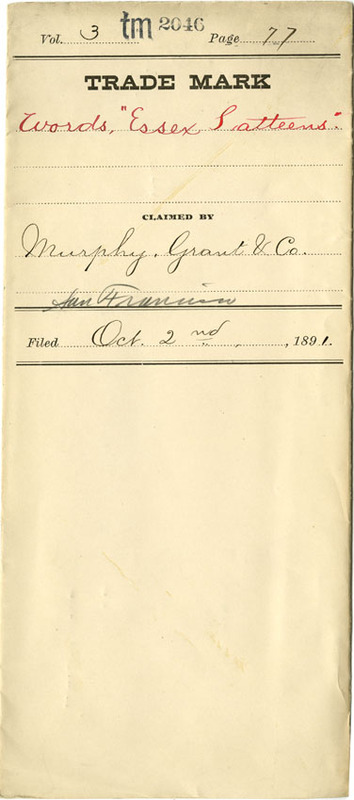 Vol. 3 tm 2046 Page 77
TRADE MARK
Words, "Essex Satteens".
CLAIMED BY
Murphy, Grant & Co.
San Francisco
Filed Oct. 2nd, 1891.